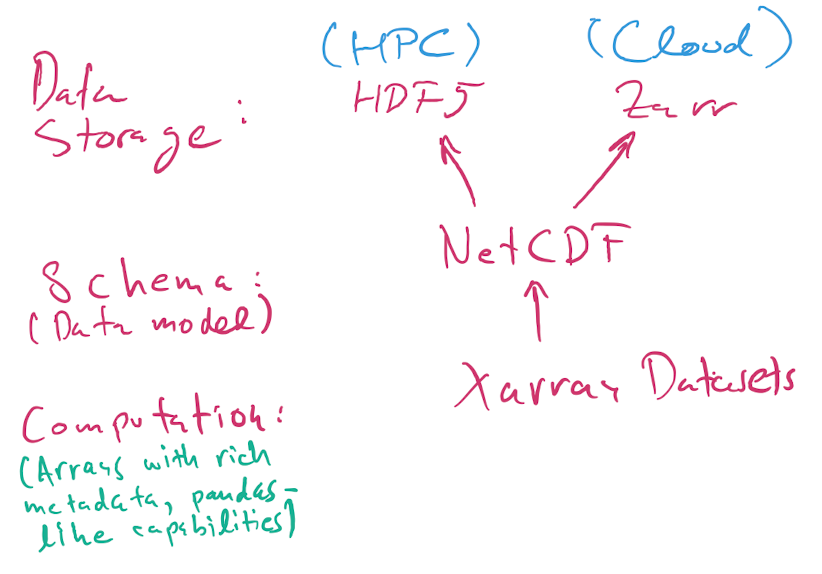 (HPC) (Cloud)
Data HDF5 Zarr
Storage:
NetCDF
Schema:
(Data model)
Xarray Datasets
Computation:
(Arrays with rich
metadata, pandas-
like capabilities)